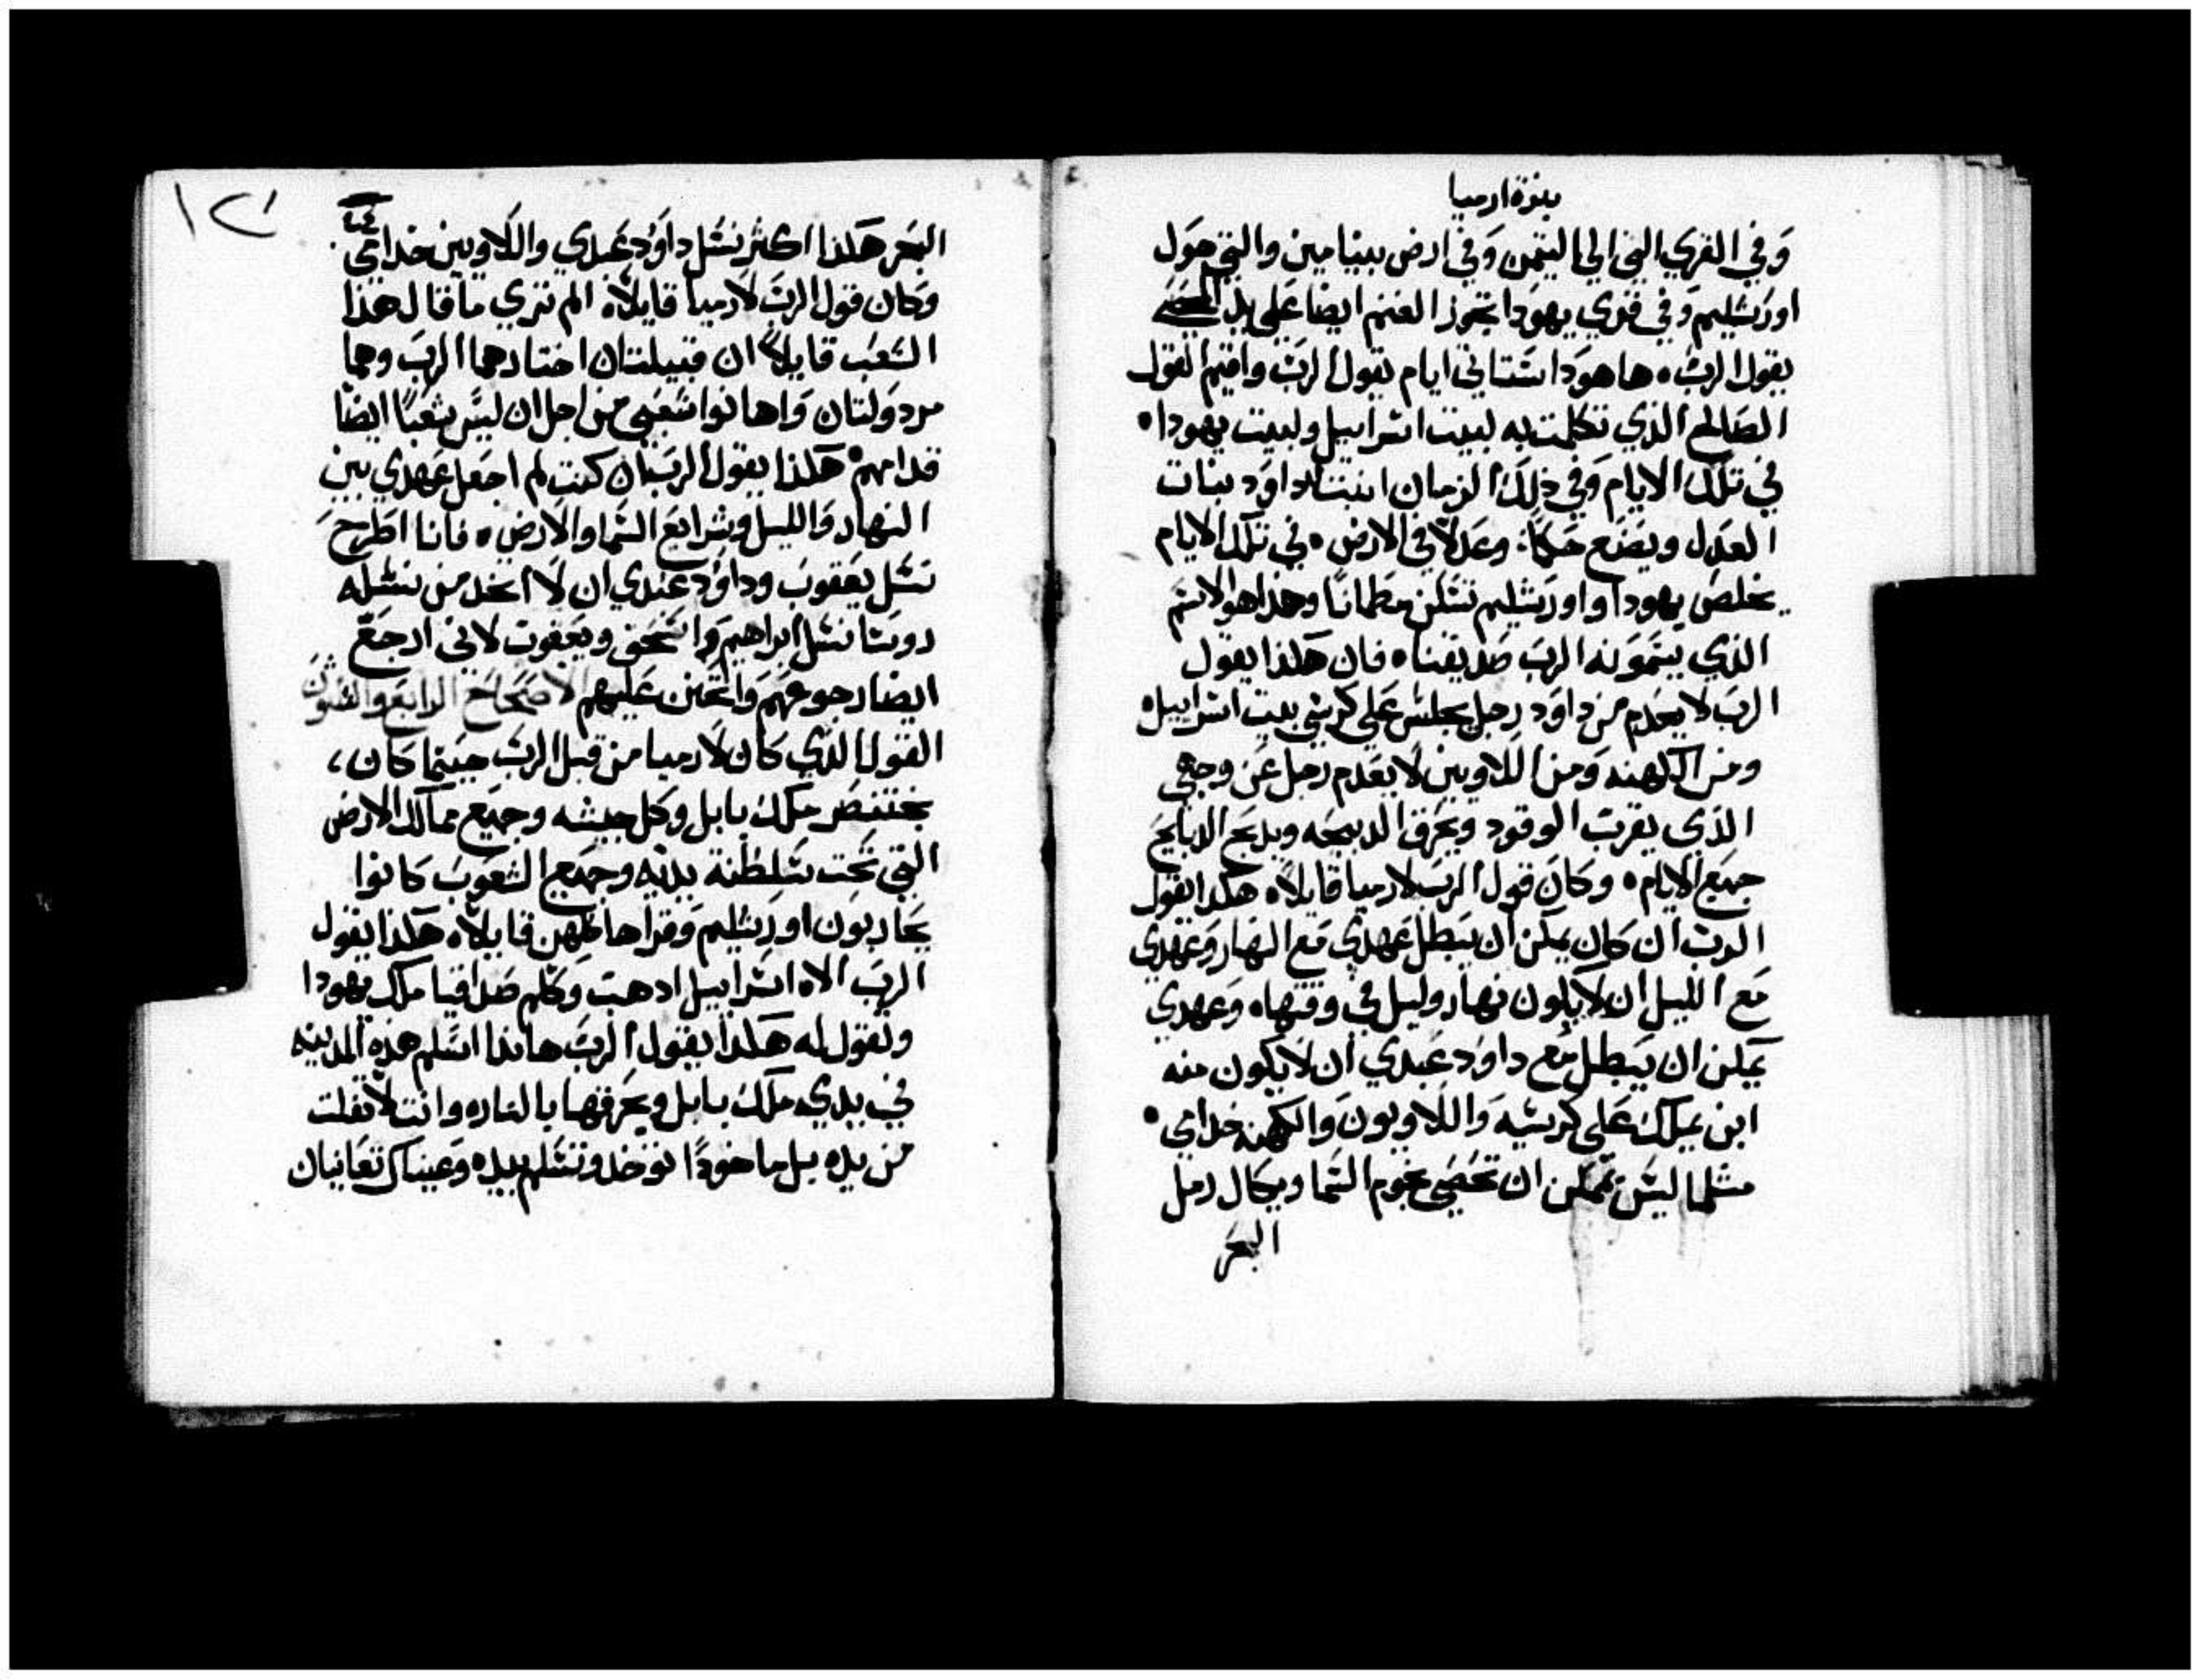 بنوة ارميا
وَفي القري التي الي اليتمن وَفي ارض بينيامين والتي حَول
اورَشليم وَفي قري يهوَدا تجوز العنم ايضا عَلي يد
يقول الربَ ه ها هوَدا ستاتي ايام يقول الربَ واقيم القول
الصَالح الذي تكلمت به لبيت اسَراييل ولبيت يهودا ه
في تلكَ الايام وَفي ذلِكَ الزمان انبت لداوَد نبات
العَدل ويصَنع حَكمًا وعَدلاً في الارض ه في تلكَ الايام
يخلصَ يهودا واورَشليم تسَكن مطمانًا وهذا هو الاسَم
الذي يسَمونه الربَ صَديقنا ه فان هَكذا يقول
الربَ لا يعَدم من داوَد رجل يجلسَ عَلي كرسَي بيت اسَراييل ه
ومن الكهنه وَمن اللاويين لا يعَدم رجل عَن وجهي
الذي يقرب الوقود ويحَرق الدبيحَه ويدبحَ الدبايحَ
جميَع الايام ه وكان قول الربَ لارميا قايلاً ه هكدا يقول
الربَ ان كان يمكن ان يَبطل عَهدي مَع النهار وَعَهدي
مَع الليل ان لا يكون نهار وليل في وقتها ه وَعهدي
يمَكن ان يَبطل مَع داوَد عَبدي ان لا يكون منه
ابن يملكَ عَلي كرسَيه وَاللاويون وَالكهنه خدامي ه
مثلما ليسَ يمَكن ان تحَصَي نجوم السَما ويكال رمل
البحَر
١٢٦
البحَر هَكذا اكثر نسَل داوَد عَبدي واللاويين خدامي
وَكان قول الربَ لارميا قايلاً ه الم تري ما قال هذا
الشعَب قايلاً ان قبيلتان اختارهما الربَ وهما
مردولتان وَاهانوا شعَبي من اجل ان ليسَ شعَبًا ايضًا
قدامهم ه هَكذا يقول الربَ ان كنت لم اجعَل عَهدي بين
النهار وَالليل وشرايعَ السَما والارض ه فانا اطرحَ
نسَل يعَقوب وداوَد عَبدي ان لا اخد من نسَله
روسَا نسَل ابراهيم وَاسَحَق ويعَقوب لاني ارجعَ
ايضا رجوعهَم وَاتحَنن عَليهم الاصَحَاحَ الرابعَ والثلثون
القول الذي كان لارميا من قبل الربَ حينما كان،
بختنصَر ملكَ بابل وَكل جيشه وجميَع ممالكَ الارض
التي تحَت سَلطنة يديه وجميَع الشعَوب كانوا
يحَاربون اورشليم وَقراها كلهن قايلاً ه هَكذا يقول
الربَ الاه اسَراييل ادهب وَكلم صَدقيا ملكَ يهودا
وَتقول له هَكدا يقول الربَ هاندا اسَلم هذه المدينه
في يدي ملكَ بابل ويحَرقها بالنار ه وانت لا تفلت
من يده بل ماخودًا توخد وتسَلم بيده وَعيناك تعَاينان